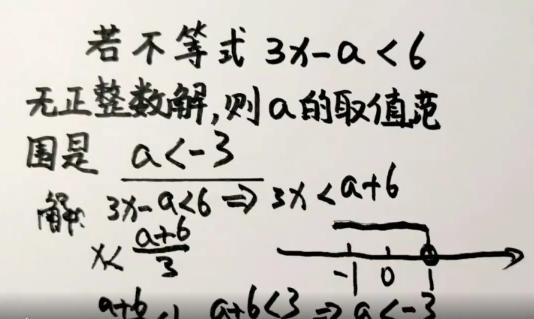 若不等式 3x-a<6
无正整数解,则a的取值范
围是 a<-3
解: 3x-a<6 ⇒ 3x<a+6
x< \frac{a+6}{3}
-1 0 1
a+6<3 ⇒ a<-3